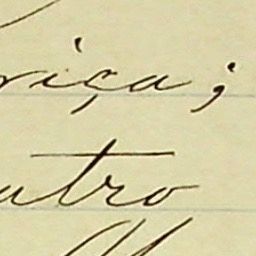 riça;
utro